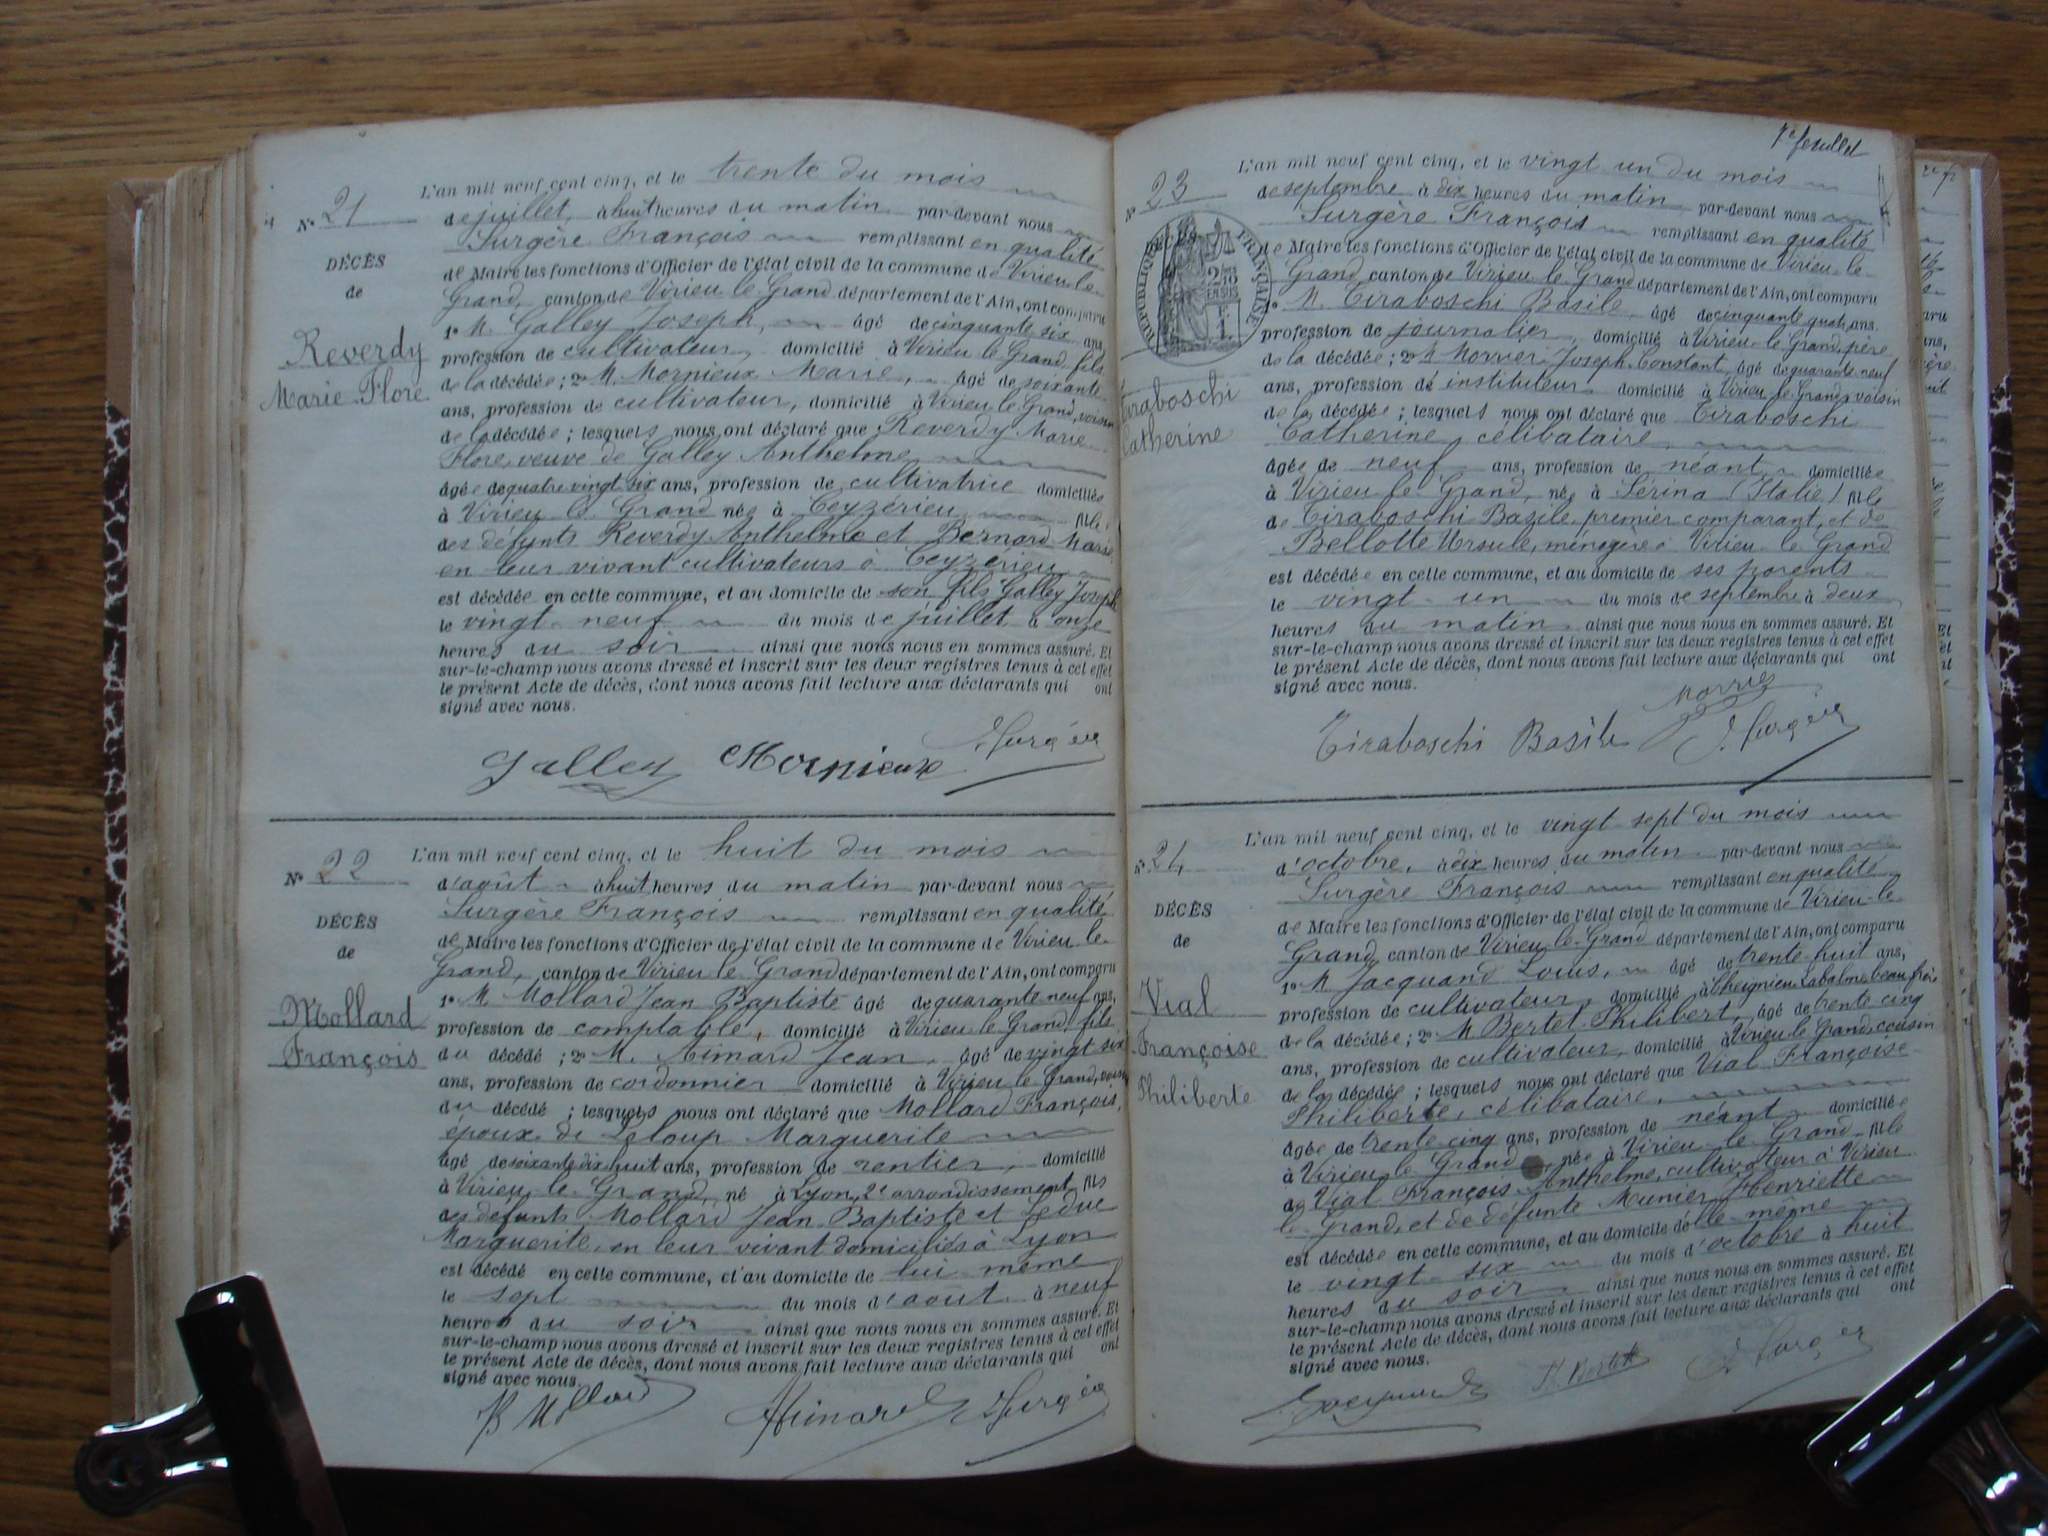 L'an mil neuf cent cinq, et le trente du mois
N° 21
de juillet, à huit heures du matin par-devant nous
Surgère François remplissant en qualité
DÉCÈS
de Maire les fonctions d'Officier de l'état civil de la commune de Virieu-le-
de
Grand, canton de Virieu le Grand département de l'Ain, ont comparu
1° M. Galley Joseph, âgé de cinquante six ans,
Reverdy
profession de cultivateur, domicilié à Virieu le Grand, fils
Marie-Flore
de la décédée ; 2° M. Mornieux Marie, âgé de soixante
ans, profession de cultivateur, domicilié à Virieu le Grand, voisin
de la décédée ; lesquels nous ont déclaré que Reverdy Marie
Flore, veuve de Galley Anthelme
âgée de quatre vingt six ans, profession de cultivatrice domiciliée
à Virieu le Grand née à Ceyzérieu fille
des défunts Reverdy Anthelme et Bernard Marie
en leur vivant cultivateurs à Ceyzérieu
est décédée en cette commune, et au domicile de son fils Galley Joseph
le vingt neuf du mois de juillet à onze
heures du soir ainsi que nous nous en sommes assuré. Et
sur-le-champ nous avons dressé et inscrit sur les deux registres tenus à cet effet
le présent Acte de décès, dont nous avons fait lecture aux déclarants qui ont
signé avec nous.
Galley Mornieux Surgère
L'an mil neuf cent cinq, et le huit du mois
N° 22
d'août à huit heures du matin par-devant nous
Surgère François remplissant en qualité
DÉCÈS
de Maire les fonctions d'Officier de l'état civil de la commune de Virieu-le-
de
Grand, canton de Virieu le Grand département de l'Ain, ont comparu
1° M. Mollard Jean Baptiste âgé de quarante neuf ans,
Mollard
profession de comptable, domicilié à Virieu le Grand, fils
François
du décédé ; 2° M. Aimard Jean, âgé de vingt six
ans, profession de cordonnier domicilié à Virieu le Grand, voisin
du décédé ; lesquels nous ont déclaré que Mollard François,
époux de Leloup Marguerite
âgé de soixante dix huit ans, profession de rentier, domicilié
à Virieu le Grand, né à Lyon, 2e arrondissement fils
des défunts Mollard Jean Baptiste et Leduc
Marguerite, en leur vivant domiciliés à Lyon
est décédé en cette commune, et au domicile de lui même
le sept du mois d'août à neuf
heures du soir ainsi que nous nous en sommes assuré. Et
sur-le-champ nous avons dressé et inscrit sur les deux registres tenus à cet effet
le présent Acte de décès, dont nous avons fait lecture aux déclarants qui ont
signé avec nous.
Mollard Aimard Surgère
7e feuillet
L'an mil neuf cent cinq, et le vingt un du mois
N° 23
de septembre à dix heures du matin par-devant nous
Surgère François remplissant en qualité
DÉCÈS
RÉPUBLIQUE FRANÇAISE
de Maire les fonctions d'Officier de l'état civil de la commune de Virieu-le-
Grand, canton de Virieu le Grand département de l'Ain, ont comparu
1° M. Tiraboschi Basile âgé de cinquante quatre ans,
profession de journalier, domicilié à Virieu-le Grand, père
de la décédée ; 2° M Morrier Joseph Constant, âgé de quarante neuf
Tiraboschi
ans, profession d'instituteur domicilié à Virieu le Grand, voisin
Catherine
de la décédée ; lesquels nous ont déclaré que Tiraboschi
Catherine, célibataire,
âgée de neuf ans, profession de néant domiciliée
à Virieu le Grand, née à Sérina (Italie) fille
de Tiraboschi Bazile premier comparant, et de
Bellotte Ursule, ménagère à Virieu-le Grand
est décédée en cette commune, et au domicile de ses parents
le vingt-un du mois de septembre à deux
heures du matin ainsi que nous nous en sommes assuré. Et
sur-le-champ nous avons dressé et inscrit sur les deux registres tenus à cet effet
le présent Acte de décès, dont nous avons fait lecture aux déclarants qui ont
signé avec nous.
Morrier
Tiraboschi Basile Surgère
L'an mil neuf cent cinq, et le vingt-sept du mois
N° 24
d'octobre, à dix heures du matin par-devant nous
Surgère François remplissant en qualité
DÉCÈS
de Maire les fonctions d'Officier de l'état civil de la commune de Virieu-le-
de
Grand, canton de Virieu-le-Grand département de l'Ain, ont comparu
1° M Jacquand Louis, âgé de trente huit ans,
Vial
profession de cultivateur, domicilié à Cheignieu Labalme beau frère
Françoise
de la décédée ; 2° M Bertet Philibert, âgé de trente cinq
ans, profession de cultivateur, domicilié à Virieu le Grand, cousin
Philiberte
de la décédée ; lesquels nous ont déclaré que Vial Françoise
Philiberte, célibataire,
âgée de trente cinq ans, profession de néant domiciliée
à Virieu-le Grand née à Virieu-le Grand fille
de Vial François Anthelme, cultivateur à Virieu
le Grand, et de défunte Munier Henriette
est décédée en cette commune, et au domicile d'elle-même
le vingt-six du mois d'octobre à huit
heures du soir ainsi que nous nous en sommes assuré. Et
sur-le-champ nous avons dressé et inscrit sur les deux registres tenus à cet effet
le présent Acte de décès, dont nous avons fait lecture aux déclarants qui ont
signé avec nous.
Jacquand Bertet Surgère